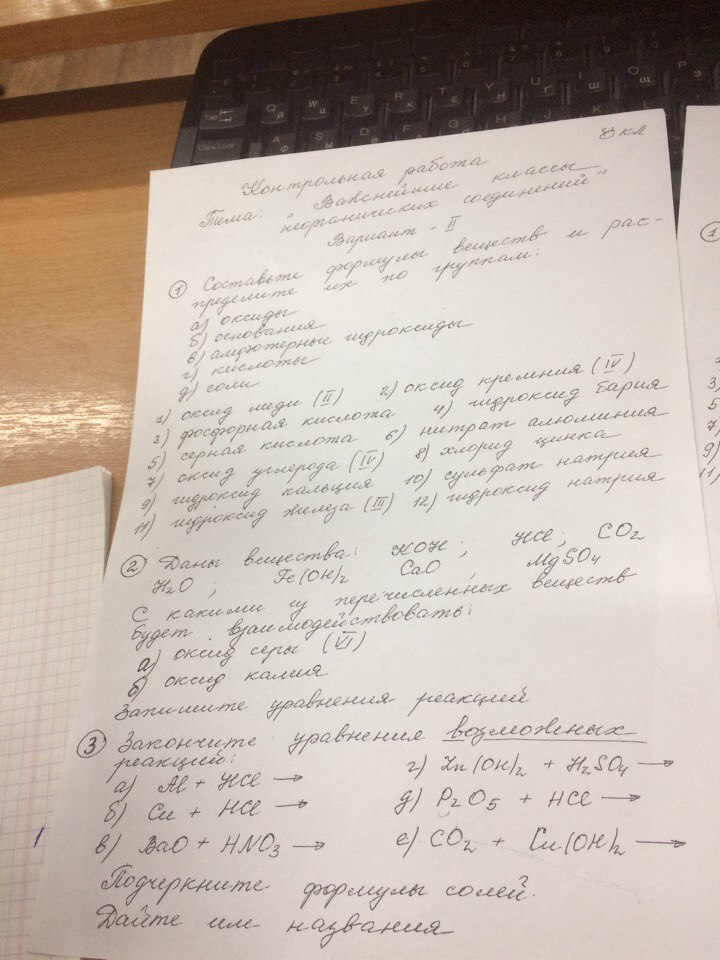 8 кл
Контрольная работа
Тема: "Важнейшие классы
неорганических соединений"
Вариант - II
1 Составьте формулы веществ и рас-
пределите их по группам:
а) оксиды
б) основания
в) амфотерные гидроксиды
г) кислоты
д) соли
1) оксид меди (II) 2) оксид кремния (IV)
3) фосфорная кислота 4) гидроксид бария
5) серная кислота 6) нитрат алюминия
7) оксид углерода (IV) 8) хлорид цинка
9) гидроксид кальция 10) сульфат натрия
11) гидроксид железа (III) 12) гидроксид натрия
2 Даны вещества: KOH; HCl; CO2
H2O; Fe(OH)2 CaO MgSO4
С какими из перечисленных веществ
будет взаимодействовать:
а) оксид серы (VI)
б) оксид калия
Запишите уравнения реакций.
3 Закончите уравнения возможных
реакций:
а) Al + HCl →
б) Cu + HCl →
в) BaO + HNO3 →
г) Zn(OH)2 + H2SO4 →
д) P2O5 + HCl →
е) CO2 + Cu(OH)2 →
Подчеркните формулы солей.
Дайте им названия
1
3)
5)
7)
9)
11)
Tab
Caps Lock
Q W E R T Y U I O P
A S D F